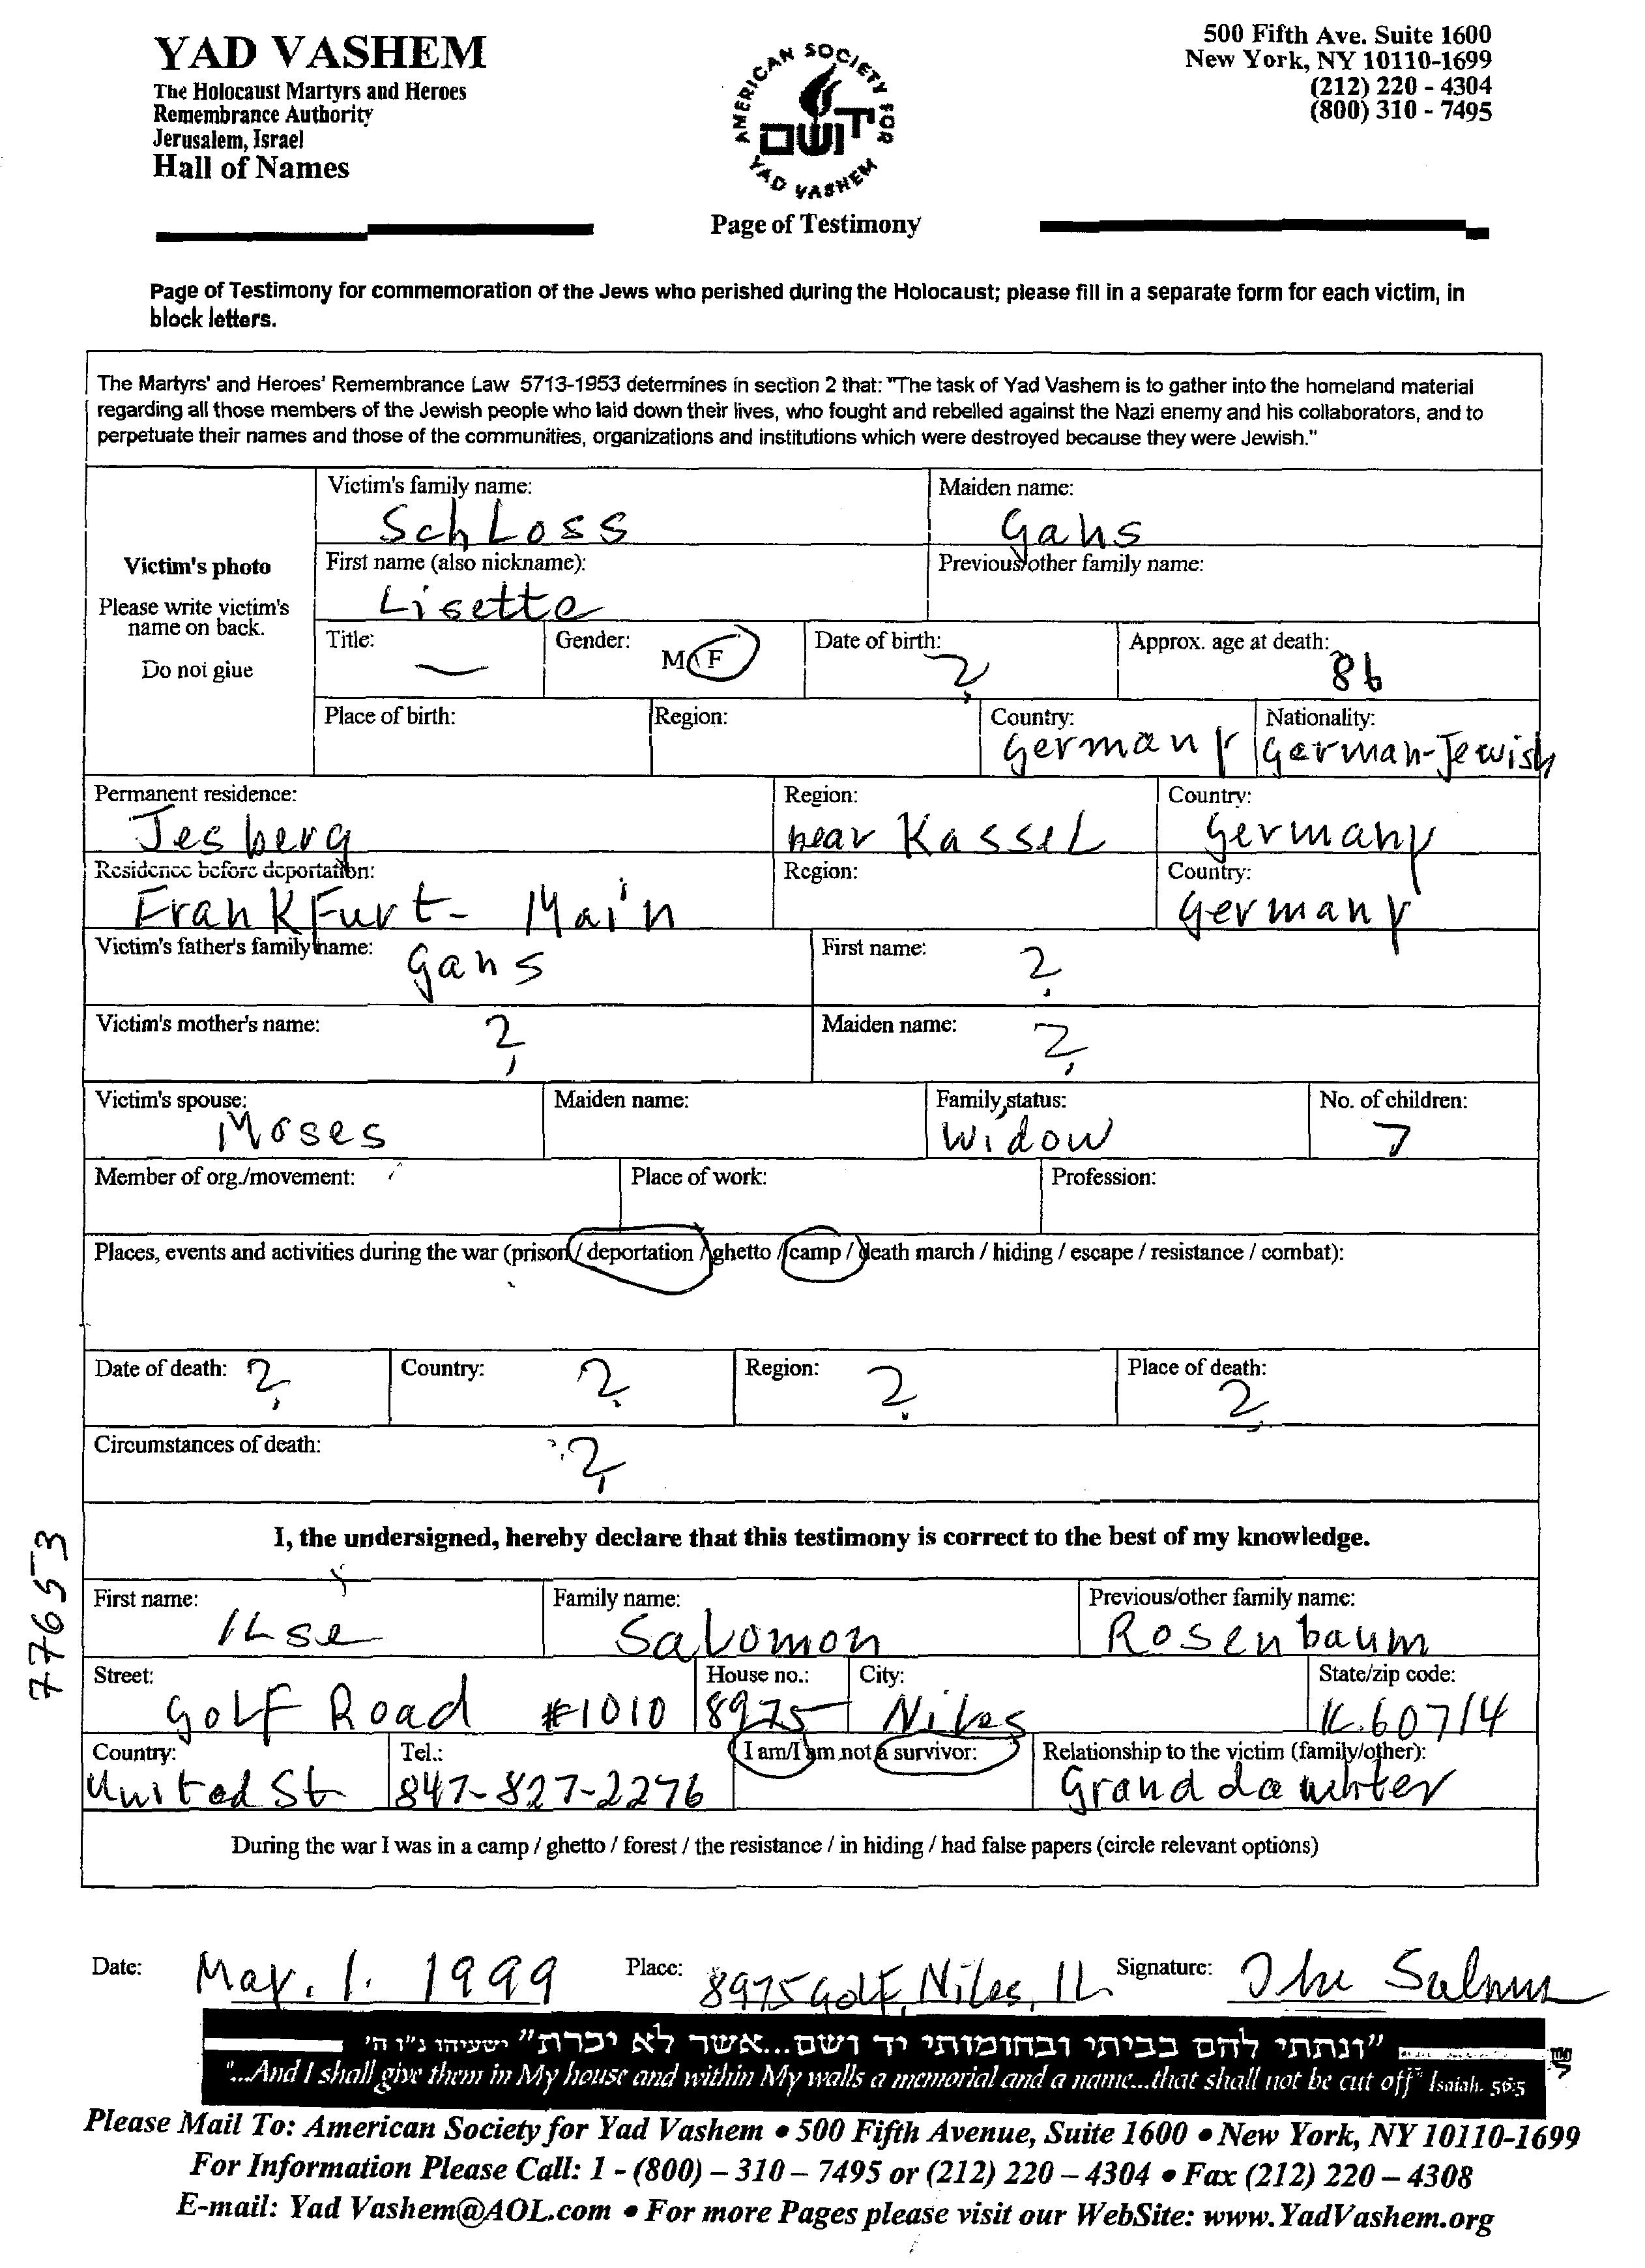 YAD VASHEM
The Holocaust Martyrs and Heroes
Remembrance Authority
Jerusalem, Israel
Hall of Names
AMERICAN SOCIETY FOR
YAD VASHEM
יד ושם
Page of Testimony
500 Fifth Ave. Suite 1600
New York, NY 10110-1699
(212) 220 - 4304
(800) 310 - 7495
Page of Testimony for commemoration of the Jews who perished during the Holocaust; please fill in a separate form for each victim, in
block letters.
The Martyrs' and Heroes' Remembrance Law 5713-1953 determines in section 2 that: "The task of Yad Vashem is to gather into the homeland material
regarding all those members of the Jewish people who laid down their lives, who fought and rebelled against the Nazi enemy and his collaborators, and to
perpetuate their names and those of the communities, organizations and institutions which were destroyed because they were Jewish."
Victim's photo
Please write victim's
name on back.
Do not glue
Victim's family name: Maiden name:
SchLoss Gans
First name (also nickname): Previous/other family name:
Lisette
Title: Gender: M F Date of birth: Approx. age at death:
— ? 86
Place of birth: Region: Country: Nationality:
Germany German-Jewish
Permanent residence: Region: Country:
Jesberg near KasseL Germany
Residence before deportation: Region: Country:
FrankFurt- Main Germany
Victim's father's family name: Gans First name: ?
Victim's mother's name: ? Maiden name: ?
Victim's spouse: Maiden name: Family status: No. of children:
Moses Widow 7
Member of org./movement: Place of work: Profession:
Places, events and activities during the war (prison / deportation / ghetto / camp / death march / hiding / escape / resistance / combat):
Date of death: ? Country: ? Region: ? Place of death: ?
Circumstances of death: ?
I, the undersigned, hereby declare that this testimony is correct to the best of my knowledge.
77653
First name: Family name: Previous/other family name:
ILse SaLomon Rosenbaum
Street: House no.: City: State/zip code:
GoLF Road #1010 8975 Niles IL.60714
Country: Tel.: I am/I am not a survivor: Relationship to the victim (family/other):
United St 847-827-2276 Grand dauhter
During the war I was in a camp / ghetto / forest / the resistance / in hiding / had false papers (circle relevant options)
Date: May. 1. 1999 Place: 8975 GoLF, Niles, IL Signature: Ilse Salomon
"ונתתי להם בביתי ובחומותי יד ושם...אשר לא יכרת" ישעיהו נ"ו ה'
"...And I shall give them in My house and within My walls a memorial and a name...that shall not be cut off" Isaiah. 56:5
Please Mail To: American Society for Yad Vashem • 500 Fifth Avenue, Suite 1600 • New York, NY 10110-1699
For Information Please Call: 1 - (800) – 310 – 7495 or (212) 220 – 4304 • Fax (212) 220 – 4308
E-mail: Yad Vashem@AOL.com • For more Pages please visit our WebSite: www.YadVashem.org